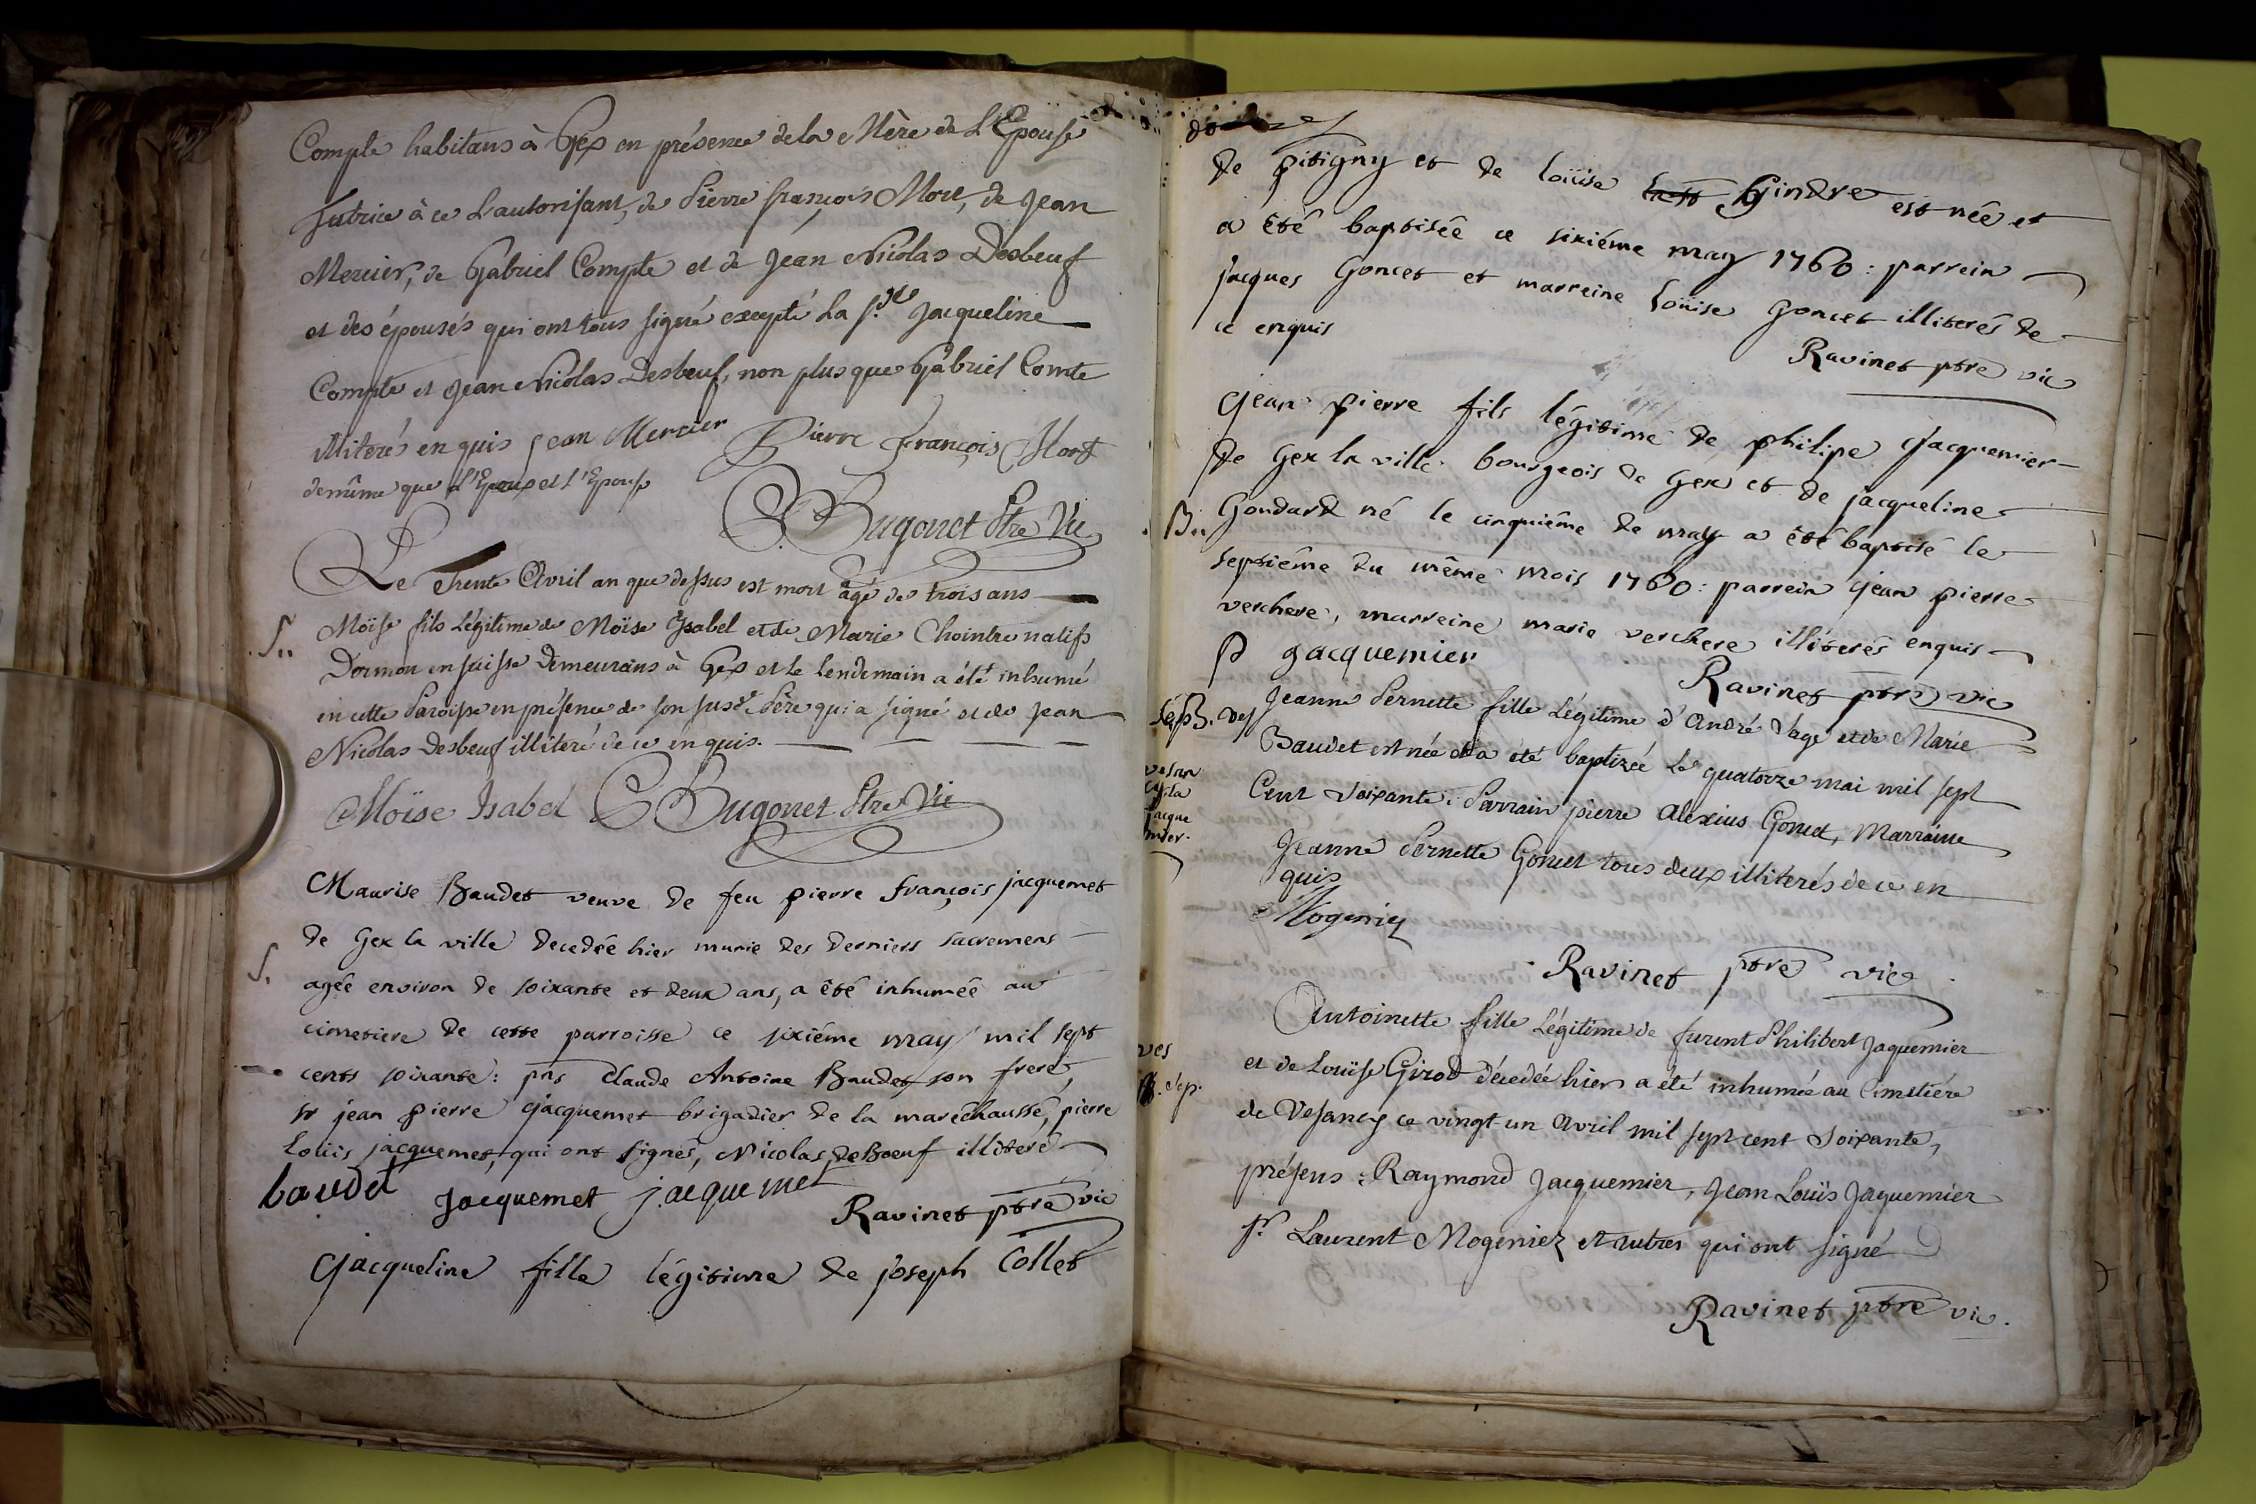 Compte habitans à Gex en présence de la Mère de L'Epouse
tutrice à ce L'autorisant, de Pierre françois Mort, de Jean
Mercier, de Gabriel Compte et de Jean Nicolas Desbeuf
et des épousés qui ont tous signé excepté La s.de Jacqueline
Compte et Jean Nicolas Desbeuf, non plus que Gabriel Comte
illiterés enquis Jean Mercier Pierre François Mort
de même que L'Epoux et L'Epouse
Bugonet Ptre Vic
Le Trente Avril an que dessus est mort âgé de trois ans
S.. Moïse fils Légitime de Moïse Isabel et de Marie Chointre natifs
D'ormon en suisse Demeurans à Gex et le Lendemain a été inhumé
en cette Paroisse en présence de son susd. Père qui a signé et de Jean
Nicolas Desbeuf illiteré de ce enquis.
Moïse Isabel Bugonet Ptre Vic
Maurise Baudet veuve de feu pierre françois jacquemet
de Gex la ville decedéé hier munie des derniers sacremens
S. agéé environ de soixante et deux ans, a été inhuméé au
cimetiere de cette parroisse ce sixiéme may mil sept
cents soixante: pns Claude Antoine Baudet son frere,
sr jean pierre jacquemet brigadier de la maréchaussé, pierre
Loüis jacquemet, qui ont signés, Nicolas DeBoeuf illiteré
baudet Jacquemet jacquemet
Ravinet ptre vic
Jacqueline fille légitime de joseph Collet
de pitigny et de loüise Gindre est néé et
a été baptiséé ce sixiéme may 1760: parrein
jacques Goncet et marreine loüise Goncet illiterés de
ce enquis
Ravinet ptre vic
Jean pierre fils légitime de philipe Jacquemier
de Gex la ville bourgeois de Gex et de jacqueline
B.. Gondard né le cinquiéme de may a été baptisé le
septiéme du même mois 1760: parrein Jean pierre
verchere, marreine marie verchere illiterés enquis
P Jacquemier
Ravinet ptre vic
Jeanne Pernette fille Légitime d'André Vage et de Marie
Baudet est née et a été baptizée Le quatorze mai mil sept
Cent Soixante: Parrain pierre Alexius Goncet, Marraine
Jeanne Pernette Goncet tous deux illiterés de ce en
quis
Mogeniez
Ravinet ptre vic
Antoinette fille Légitime de furent Philibert Jaquemier
et de Loüise Girod décedéé hier a été inhumée au Cimetiére
de Vesancy ce vingt un Avril mil sept cent Soixante,
présens: Raymond Jacquemier, Jean Loüis Jaquemier
sr. Laurent Mogeniez et autres qui ont signé
Ravinet ptre vic.